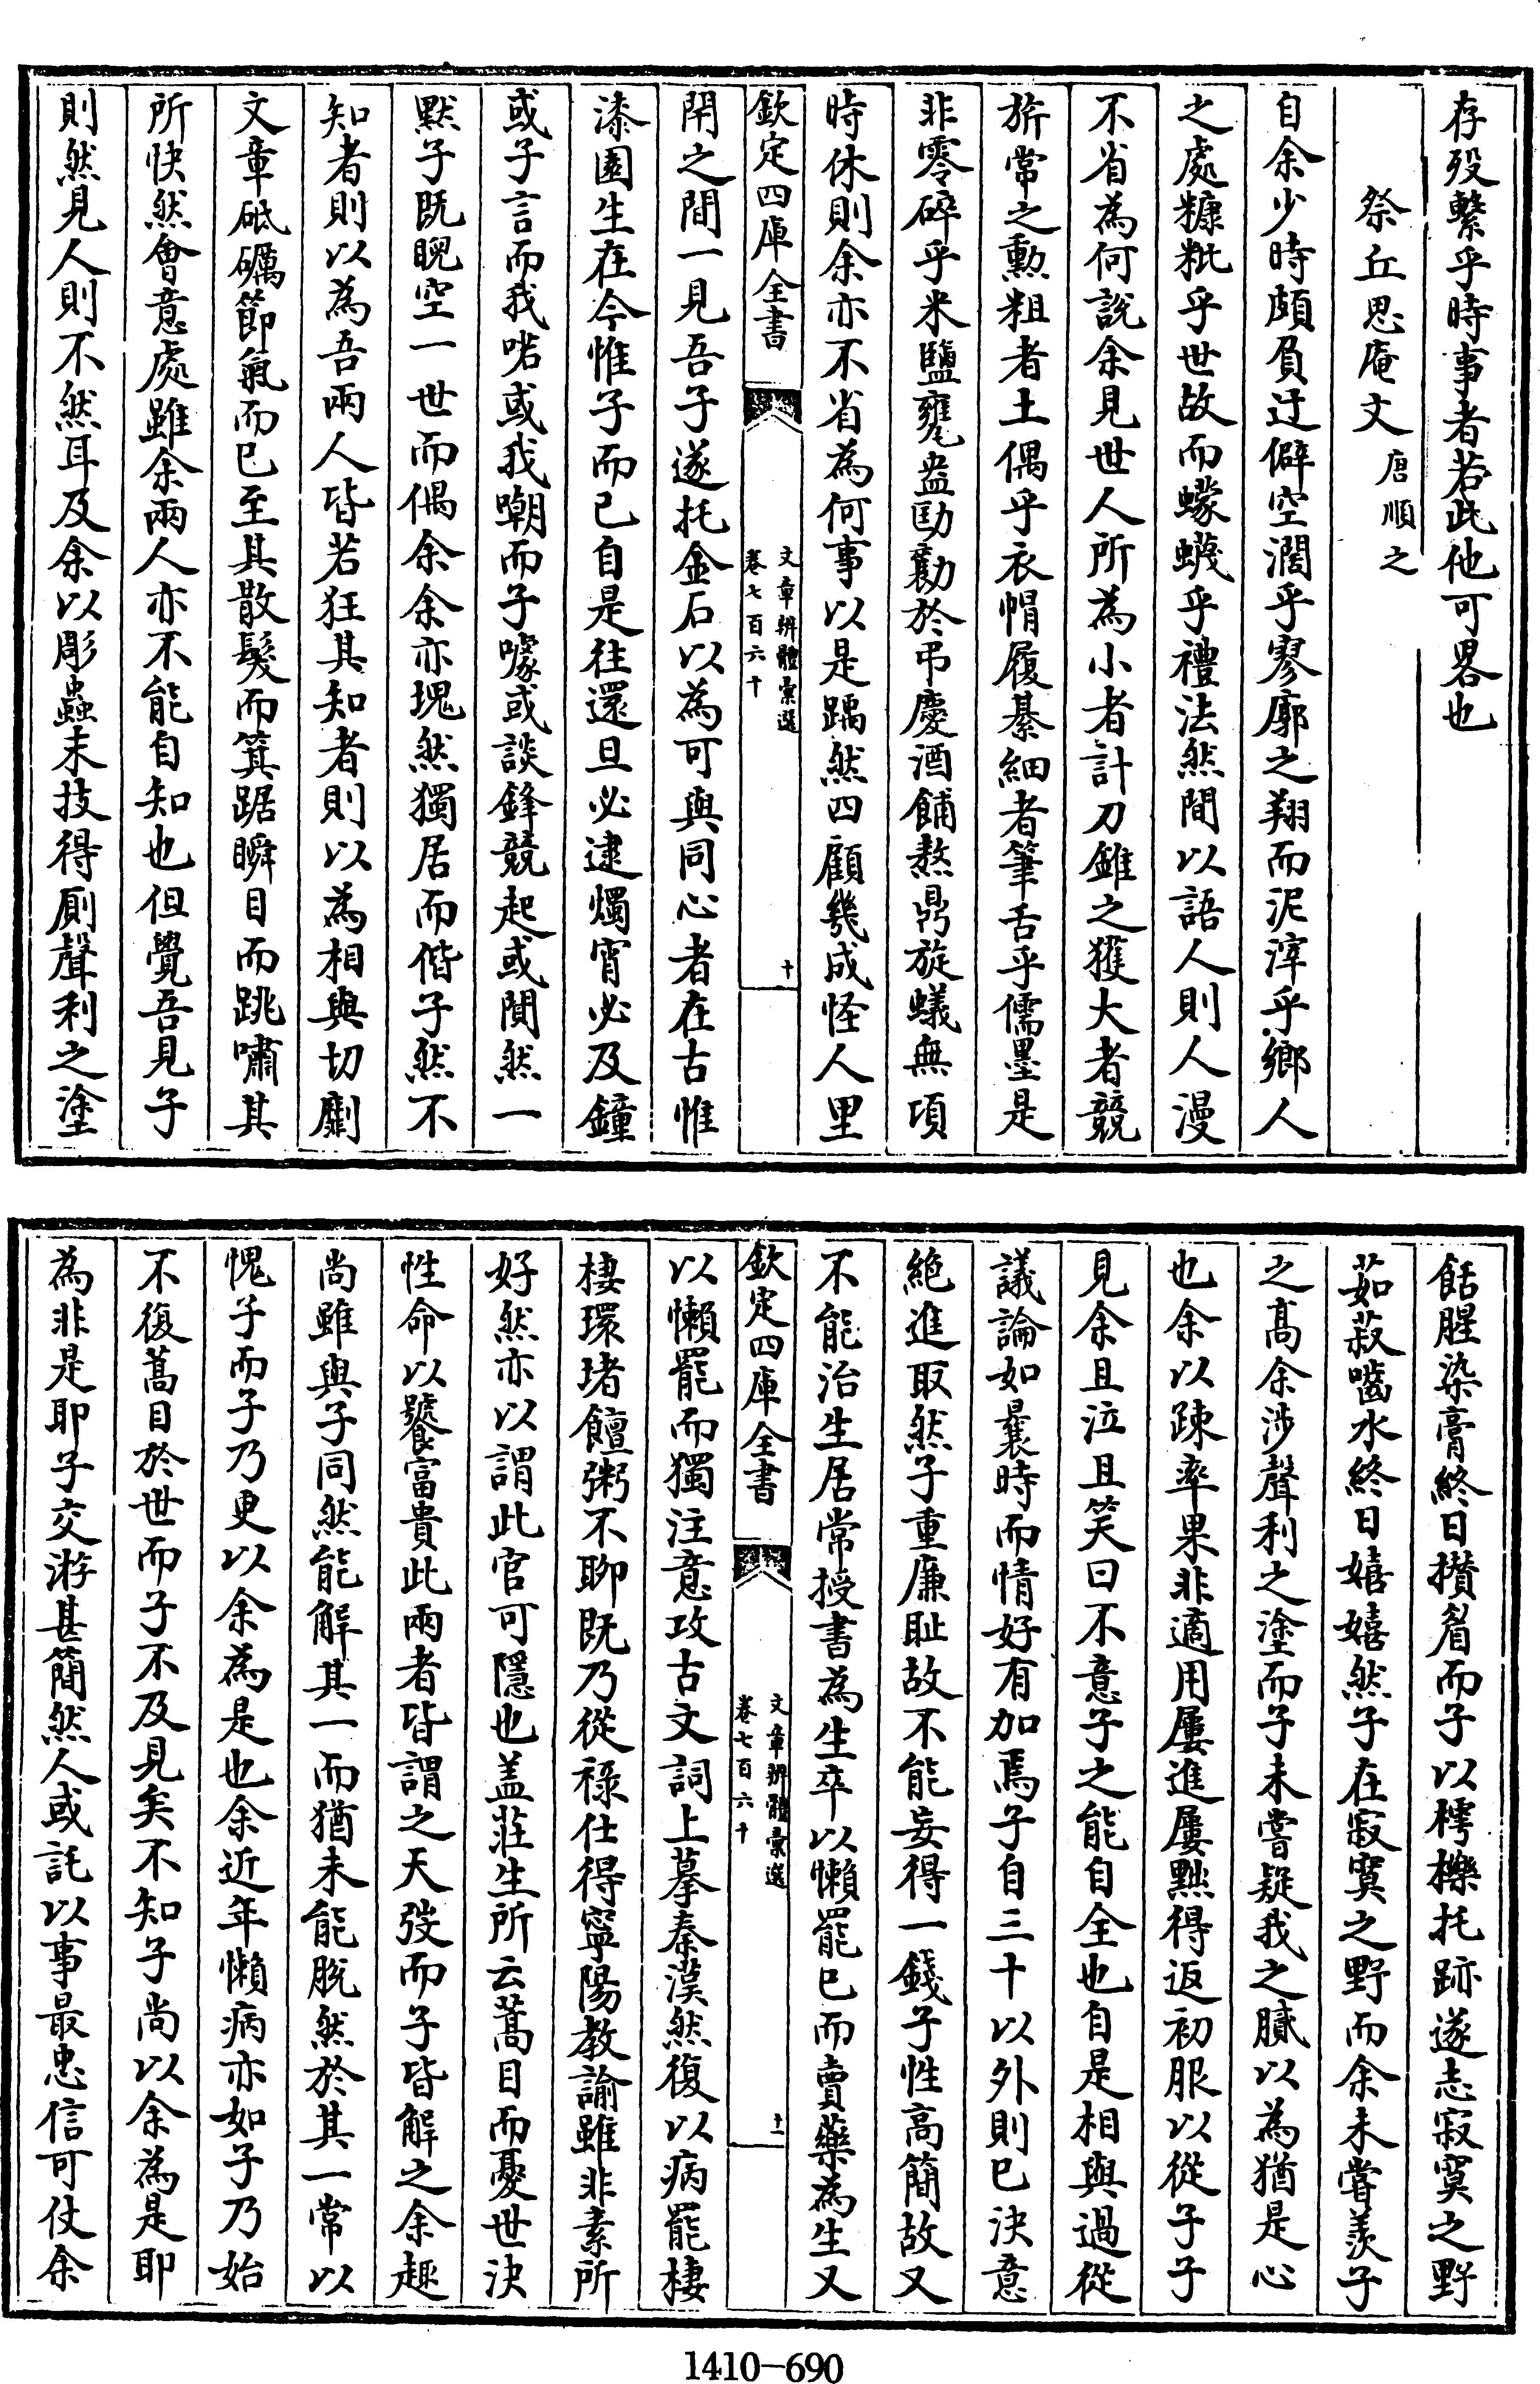 存歿繫乎時事者若此他可畧也
祭丘思庵文 唐順之
自余少時頗負迂僻空濶乎寥廓之翔而泥滓乎鄉人
之處糠粃乎世故而蠓蠛乎禮法然間以語人則人漫
不省為何說余見世人所為小者計刀錐之獲大者競
旂常之勲粗者土偶乎衣帽履綦細者筆舌乎儒墨是
非零碎乎米鹽甕盎劻勷於弔慶酒餔熬鼎旋蟻無項
時休則余亦不省為何事以是踽然四顧幾成怪人里
欽定四庫全書
文章辨體彚選
卷七百六十
十
閈之間一見吾子遂托金石以為可與同心者在古惟
漆園生在今惟子而已自是往還旦必逮燭宵必及鐘
或子言而我喏或我嘲而子噱或談鋒競起或閴然一
默子既睨空一世而偶余余亦塊然獨居而偕子然不
知者則以為吾兩人皆若狂其知者則以為相與切劘
文章砥礪節氣而已至其散髮而箕踞瞬目而跳嘯其
所快然會意處雖余兩人亦不能自知也但覺吾見子
則然見人則不然耳及余以彫蟲末技得厠聲利之塗
餂腥染膏終日攅眉而子以樗櫟托跡遂志寂寞之野
茹菽嚙水終日嬉嬉然子在寂寞之野而余未嘗羡子
之髙余涉聲利之塗而子未嘗疑我之膩以為猶是心
也余以疎率果非適用屢進屢黜得返初服以從子子
見余且泣且笑曰不意子之能自全也自是相與過從
議論如曩時而情好有加焉子自三十以外則已決意
絶進取然子重廉耻故不能妄得一錢子性高簡故又
不能治生居常授書為生卒以懶罷已而賣藥為生又
欽定四庫全書
文章辨體彚選
卷七百六十
十一
以懶罷而獨注意攻古文詞上摹秦漢然復以病罷棲
棲環堵饘粥不聊既乃從祿仕得寧陽教諭雖非素所
好然亦以謂此官可隱也盖莊生所云蒿目而憂世決
性命以饕富貴此兩者皆謂之天弢而子皆解之余趣
尚雖與子同然能解其一而猶未能脫然於其一常以
愧子而子乃更以余為是也余近年懶病亦如子乃始
不復蒿目於世而子不及見矣不知子尚以余為是耶
為非是耶子交游甚簡然人或託以事最忠信可仗余
1410—690